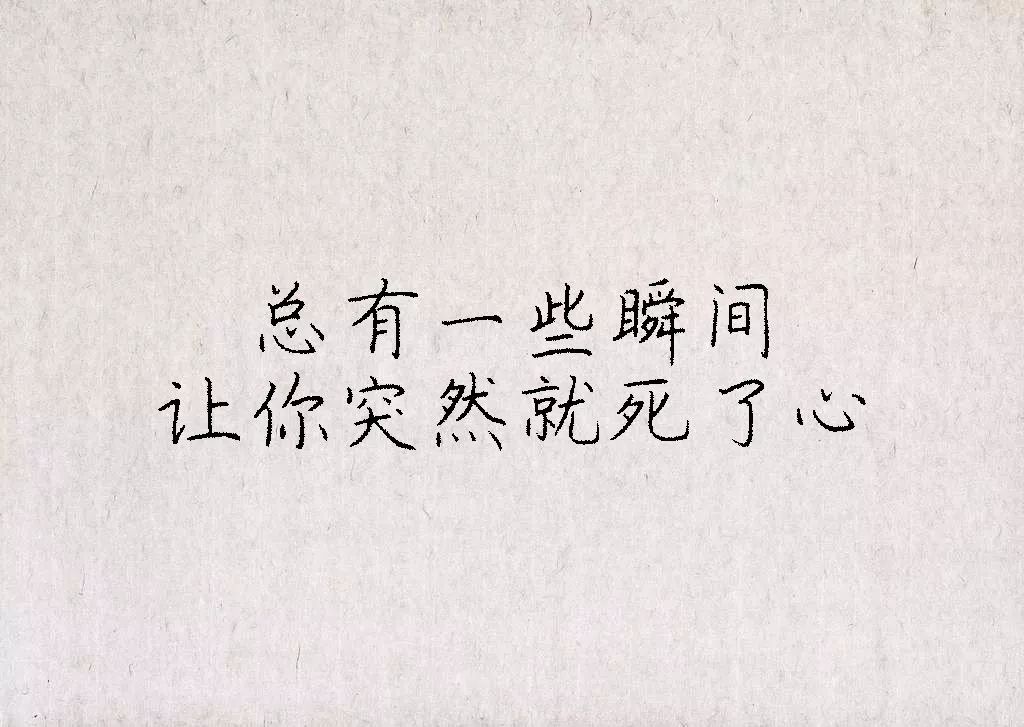 总有一些瞬间
让你突然就死了心